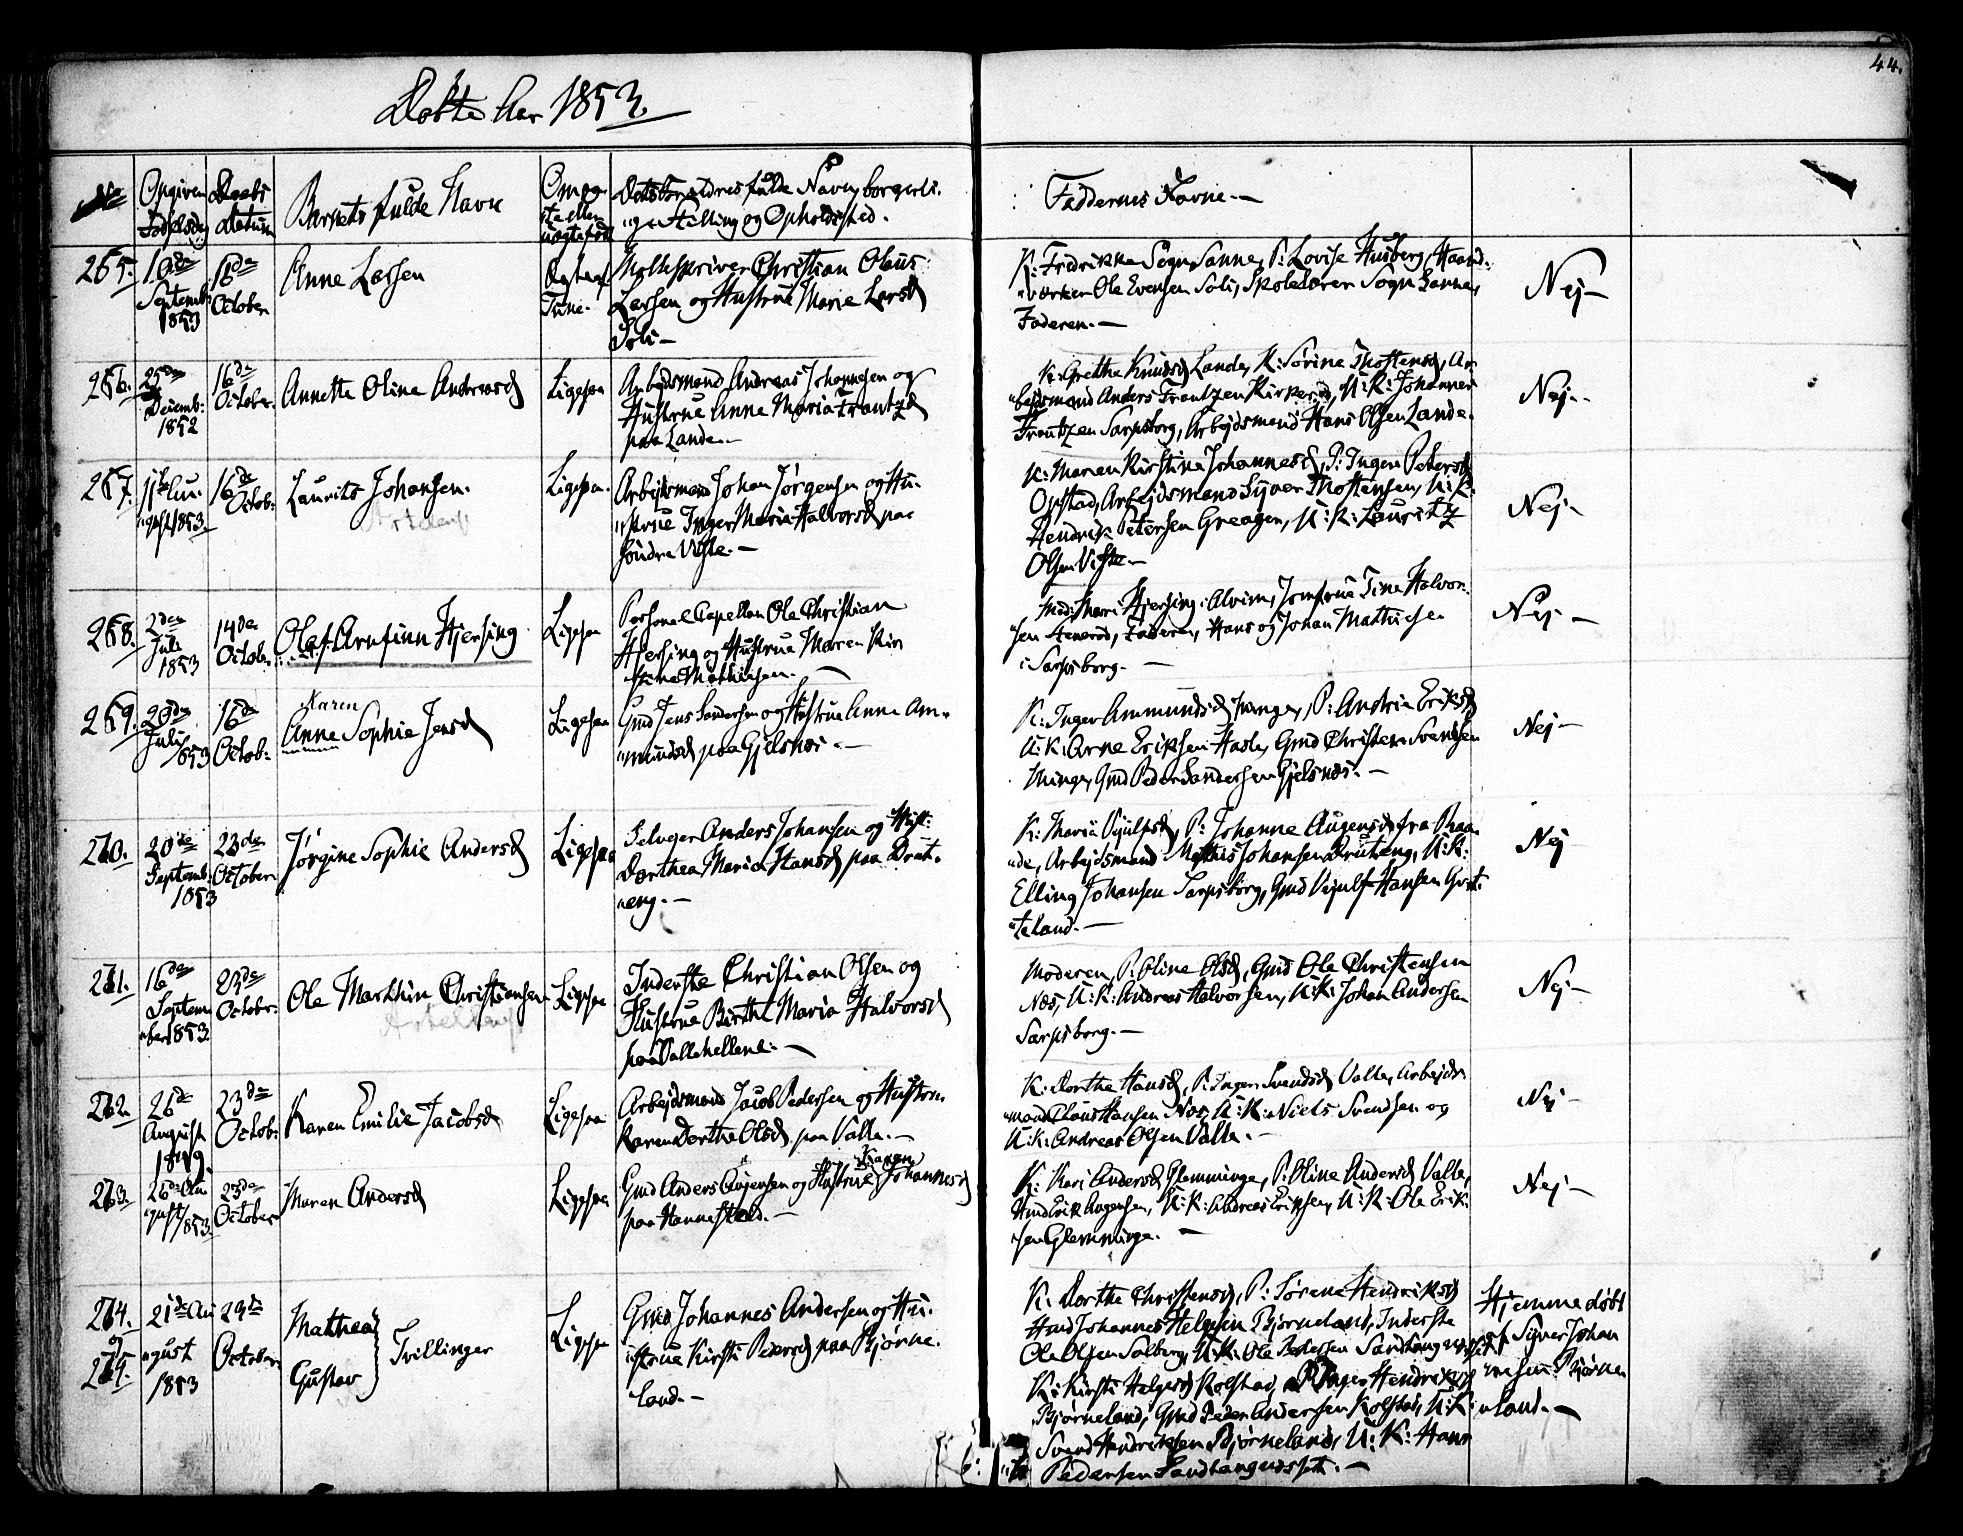 44.
Døbte har 1853.
No
Opgiven Fødselsdag
Daabs Datum
Barnets fulde Navn
Om
ste eller
uægtefødt
fulde Navn, borgerli-
ge Stilling og Opholdssted.
Faddernes Navne.—
265. 10de Septemb: 1853
16de October
Anne Larsen
Tune.
Christian Olaus
Larsen og Hustrue Marie Larsd
Soli—
K: Fredrikke Sogn Sanne, P: Lovise Husberg, Haand-
værker Ole Evensen Soli, Skolelærer Sogn Sanne,
Faderen.—
Nej—
266. 25de Decemb: 1852
16de October.
Annette Oline Andreasd
Ligesaa
Arbejdsmand Andreas Johannesen og
Hustrue Anne Maria Frantzd
paa Lande.—
K: Grethe Knudsd Lande, K: Sørine Thostensd, Ar-
bejdsmand Anders Frantzen Kirkerød, U: K: Johannes
Frantzen Sarpsborg, Arbejdsmand Hans Olsen Lande.
Nej.-
267. 11te Au-
gust 1853.
16de Octob:
Laurits Johansen.
Ligesaa.
Arbejdsmand Johan Jørgensen og Hu-
strue Inger Maria Halvorsd paa
Søndre Viste.—
K: Maren Kirstine Johannesd, P: Inger Petersd
Opstad, Arbejdsmand Syver Thostensen, U: K:
Hendrik Petersen Greagen, U: K: Lauritz
Olsen Viste.—
Nej-
268. 2den Juli 1853
14de October
Olaf Arnfinn Hjersing
Ligesaa
Personel Capellan Ole Christian
Hjersing og Hustrue Maren Kir-
stine Mathiesen.—
Mad: Mari Hjersing: Alvim, Jomfrue Tine Halvor-
sen Stenerød, Faderen, Hans og Johan Mathiesen
i Sarpsborg.—
Nej—
Karen
269. 29de Juli 1853
16de Octob:
Anne Sophie Jensd
Ligesaa
Gmd Jens Sandersen og Hustrue Anne Am-
mundsd paa Gjelsnæs.—
K: Inger Ammundsd P: Andrea Eriksd
U: K: Arne Eriksen Hasle, Gmd Christen Svendsen
Minge, Gmd Peder Sandersen Gjelsnæs.—
Nej—
270. 20de Septemb: 1853
23de October
Jørgine Sophie Andersd
Ligesaa
Selvejer Anders Johansen og Hust:
Dorthea Maria Hansd paa Brat-
eng.—
K: Maria P: Johanne Augensd fra Raa-
de, Arbejdsmand Mathis Johansen U: K:
Elling Johansen Sarpsborg, Gmd Hansen
land.—
Nej
271. 16de Septem-
ber 1853
23de October
Ole Marthin Christiansen
Ligesaa
Inderste Christian Olsen og
Hustrue Berthe Maria Halvorsd
paa Vallehellene.—
Moderen, P: Oline Olsd, Gmd Ole Christensen
Næs, U: K: Andreas Halvorsen, U: K: Johan Andersen
Sarpsborg.—
Nej—
272. 26de August 1849.
23de Octob:
Karen Emilie Jacobsd
Ligesaa
Arbejdsmand Jacob Pedersen og Hustru
Karen Dorthe Olsd paa Valle.—
K: Dorthe Hansd, P: Inger Svendsd Valle, Arbejds-
mand Claus Hansen Næs, U: K: Niels Svendsen og
U: K: Andreas Olsen Valle.—
Nej—
273. 26de Au-
gust 1853.
23de October
Maren Andersd
Ligesaa
Karen
Gmd Anders Augensen og Hustrue Johannesd
paa Hannestad.—
K: Kari Andersd Glemminge, P: Oline Andersd Valle,
Gmd Erik Augensen, U: K: Andreas Eriksen, U: K: Ole Erik-
sen Glemminge.—
Nej—
274. og 275.
21de Au-
gust 1853
23de October
Mathea
Gustav
Tvillinger
Ligesaa
Gmd Johannes Andersen og Hu-
strue Kirsti Pedersd paa Bjørne-
land.—
K: Dorthe Christensd, P: Sørene Hendriksd
Gmd Johannes Helgesen Bjørneland, Inderste
Ole Olsen Solberg, U: K: Ole Pedersen
K: Kirsti Helgesd Kolstad, P: Inger Hendriksd
Bjørneland, Gmd Peder Andersen Kolstad, U: K:
Svend Hendriksen Bjørneland, U: K: Hans
Pedersen
Hjemmedøbt
af Syver Johan-
nesen Bjørne-
land.—